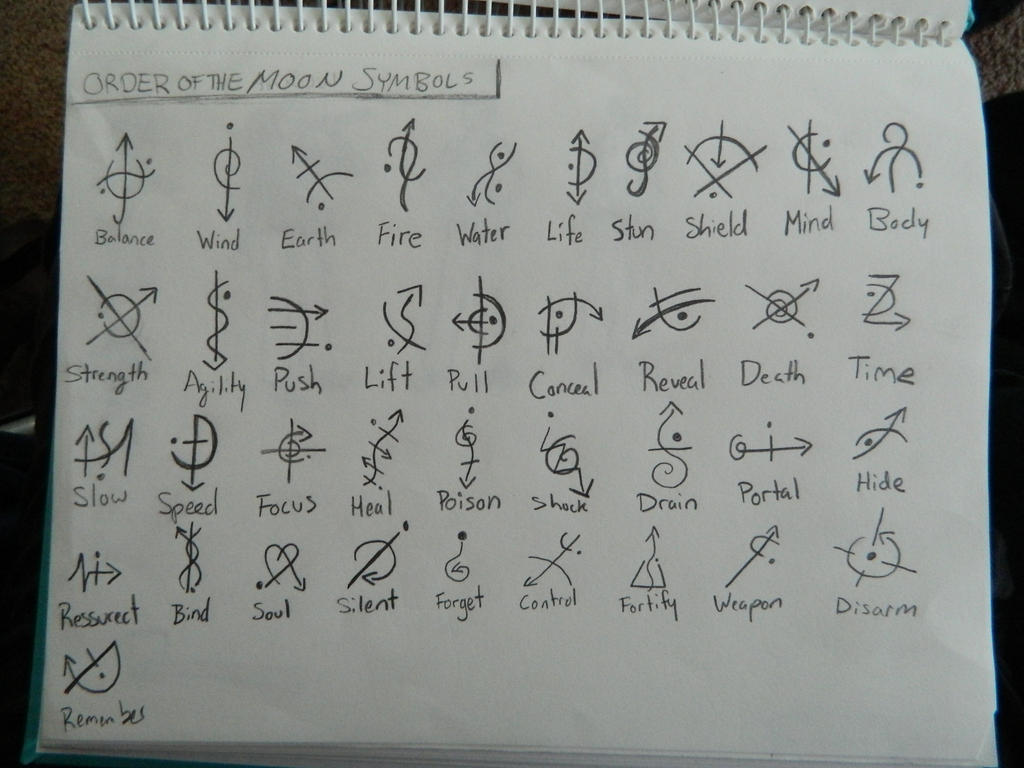 ORDER OF THE MOON SYMBOLS
Balance Wind Earth Fire Water Life Stun Shield Mind Body
Strength Agility Push Lift Pull Conceal Reveal Death Time
Slow Speed Focus Heal Poison Shock Drain Portal Hide
Ressurect Bind Soul Silent Forget Control Fortify Weapon Disarm
Remember